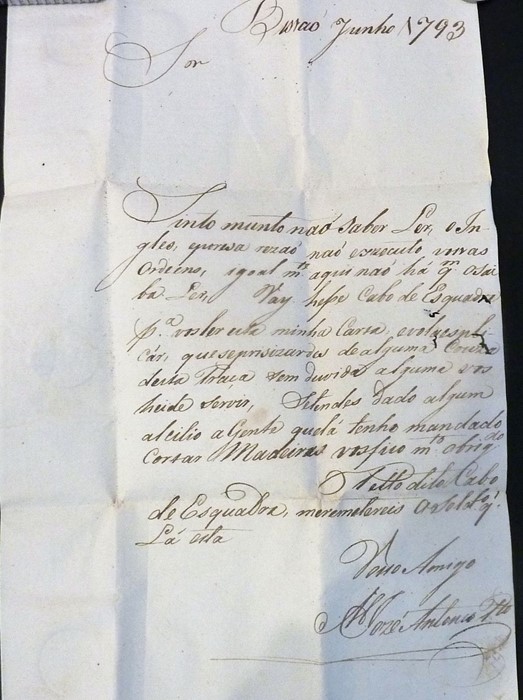 Bissaó Junho 1793
Sor
Sinto munto naó Saber Ler, o In-
gles, rezaó naó executo vosas
ordens, igoal mte aqui nao há qm o sai
ba Ler, Vay hesse Cabo de Esquadra
pa vos ler esta minha Carta, e
car, que se de alguma Couza
desta Praça sem duvida alguma vos
heide servir, Setendes dado algum
alcilio a Gente que lá tenho mandado
Cortar Madeiras vosfico mto obrigdo
Pello dito Cabo
de Esquadra, meremetereis o q.
Lá esta
Vosso Amigo
José Antonio Pto